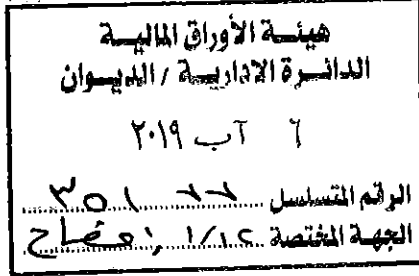 هيئة الأوراق المالية
الدائرة الادارية / الديوان
٦ آب ٢٠١٩
الرقم المتسلسل ٣٥١
الجهة المختصة ١/١٢ إفصاح